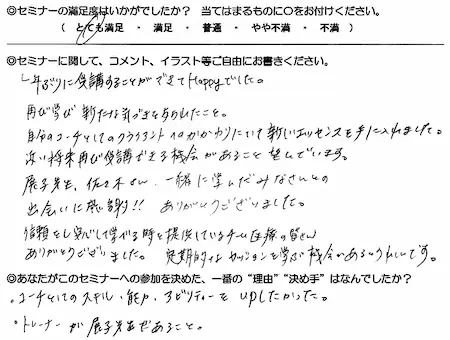 ◎セミナーの満足度はいかがでしたか? 当てはまるものに○をお付けください。
( とても満足 ・ 満足 ・ 普通 ・ やや不満 ・ 不満 )
◎セミナーに関して、コメント、イラスト等ご自由にお書きください。
年ぶりに受講することができてHappyでした。
再び学び 新たな気づきを得られたこと。
自分のコーチとしてのクライアントへのかかわりについて 新しいエッセンスを手に入れました。
近い将来再び受講できる機会があること 望んでいます。
展子先生、佐々木さん、一緒に学んだみなさんとの
出会いに感謝!! ありがとうございました。
信頼と安心して学べる時を提供しているチーム医療の皆さん
ありがとうございました。 定期的な セッションを学ぶ機会があるとうれしいです。
◎あなたがこのセミナーへの参加を決めた、一番の"理由" "決め手" はなんでしたか?
・コーチとしてのスキル・能力・アビリティーを UPしたかった。
・トレーナーが 展子先生であること。